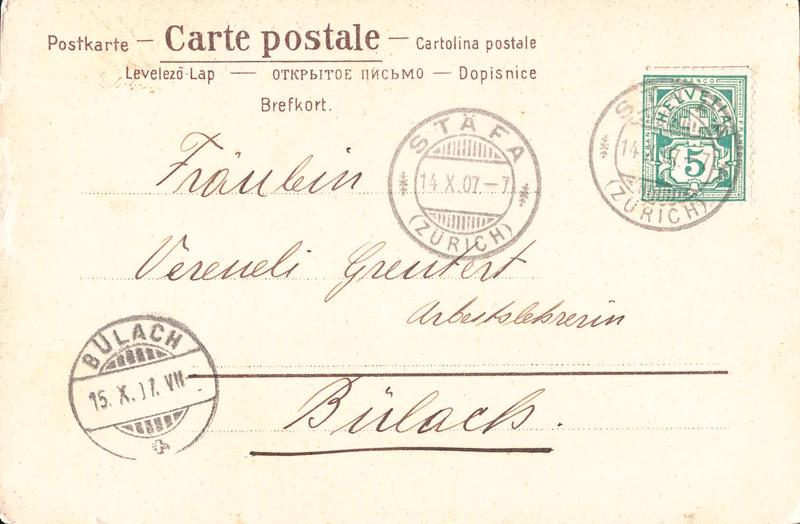 Postkarte — Carte postale — Cartolina postale
Levelező-Lap — ОТКРЫТОЕ ПИСЬМО — Dopisnice
Brefkort.
FRANCO
HELVETIA
5
(ZÜRICH)
STÄFA
14 X.07.–7
(ZÜRICH)
Fräulein
Vereneli Greutert
Arbeitslehrerin
BÜLACH
15. X. 07. VII
Bülach.